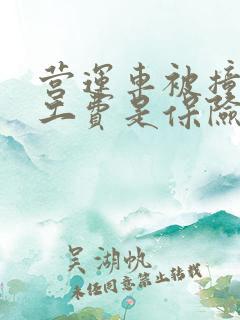 营运车被撞
工费是保险
吴湖帆
未经同意禁止转载